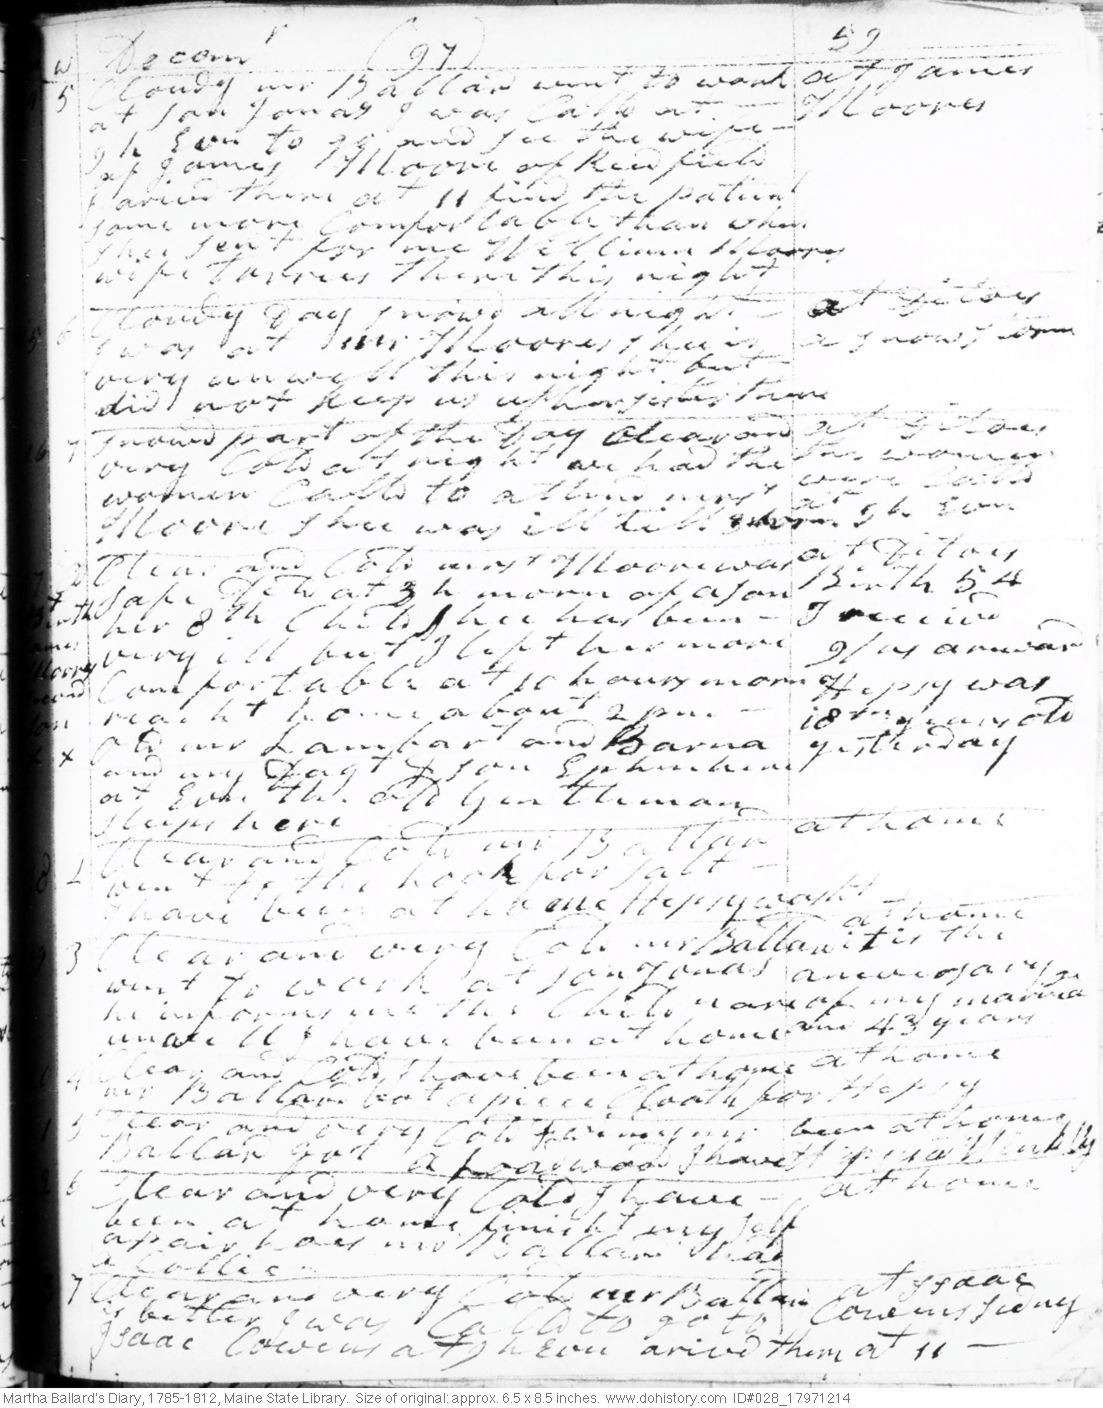 Decem r (97) 59
W
5 Cloudy mr Ballard went to work at James
at son Jonas I was Calld at Moores
9 h Evn to go and see the wife
of James Moore of Readfield
I arivd there at 11 find the patient
some more Comfortable than when
shee sent for me William Moores
wife tarries there this night
6 Cloudy Day snowd all night at Ditoes
I was at mr Moores shee is a snow storm
very unwell this night but
did not keep us up her sister there
7 snowd part of the Day Clear and at Ditoes
very Cold at night we had the the women
women Calld to attend mrs were Calld
Moore shee was ill till at 9 h Evn
Clear and Cold mrs Moore was at Ditoes
safe Dld at 3 h morn of a son Birth 54
Birth her 8th Child shee has been I receivd
very ill but I left her more 9/ as a reward
Moors Comfortable at 10 hours morn Hepsy was
second reacht home about 2 pm 18 years old
son old mr Lambart and Barna yesterday
x x and my Dagt & son Ephm here
at Evn the old Gentleman
sleeps here
Clear and Cold mr Ballard at home
went to the hook for salt
I have been at home Hepsy washt
3 Clear and very Cold mr Ballard at home
went to work at son Jonas it is the
he informs me the Child aniversary
unwell I have been at home of my mariage
and 43 years
4 Clear and Cold I have been at home at home
mr Ballard bot a piece Cloath for Hepsy
5 Clear and very Cold mr been at home
Ballard got a load wood I have
6 Clear and very Cold I have at home
been at home finisht my self
a pair hoes mr Ballard had
a Collic
7 Clear and very Cold mr Ballard at Isaac
is better I was Calld to go to Cowens Sidny
Isaac Cowens at 9 h Evn arivd there at 11
Martha Ballard's Diary, 1785-1812, Maine State Library. Size of original: approx. 6.5 x 8.5 inches. www.dohistory.com ID#028_17971214